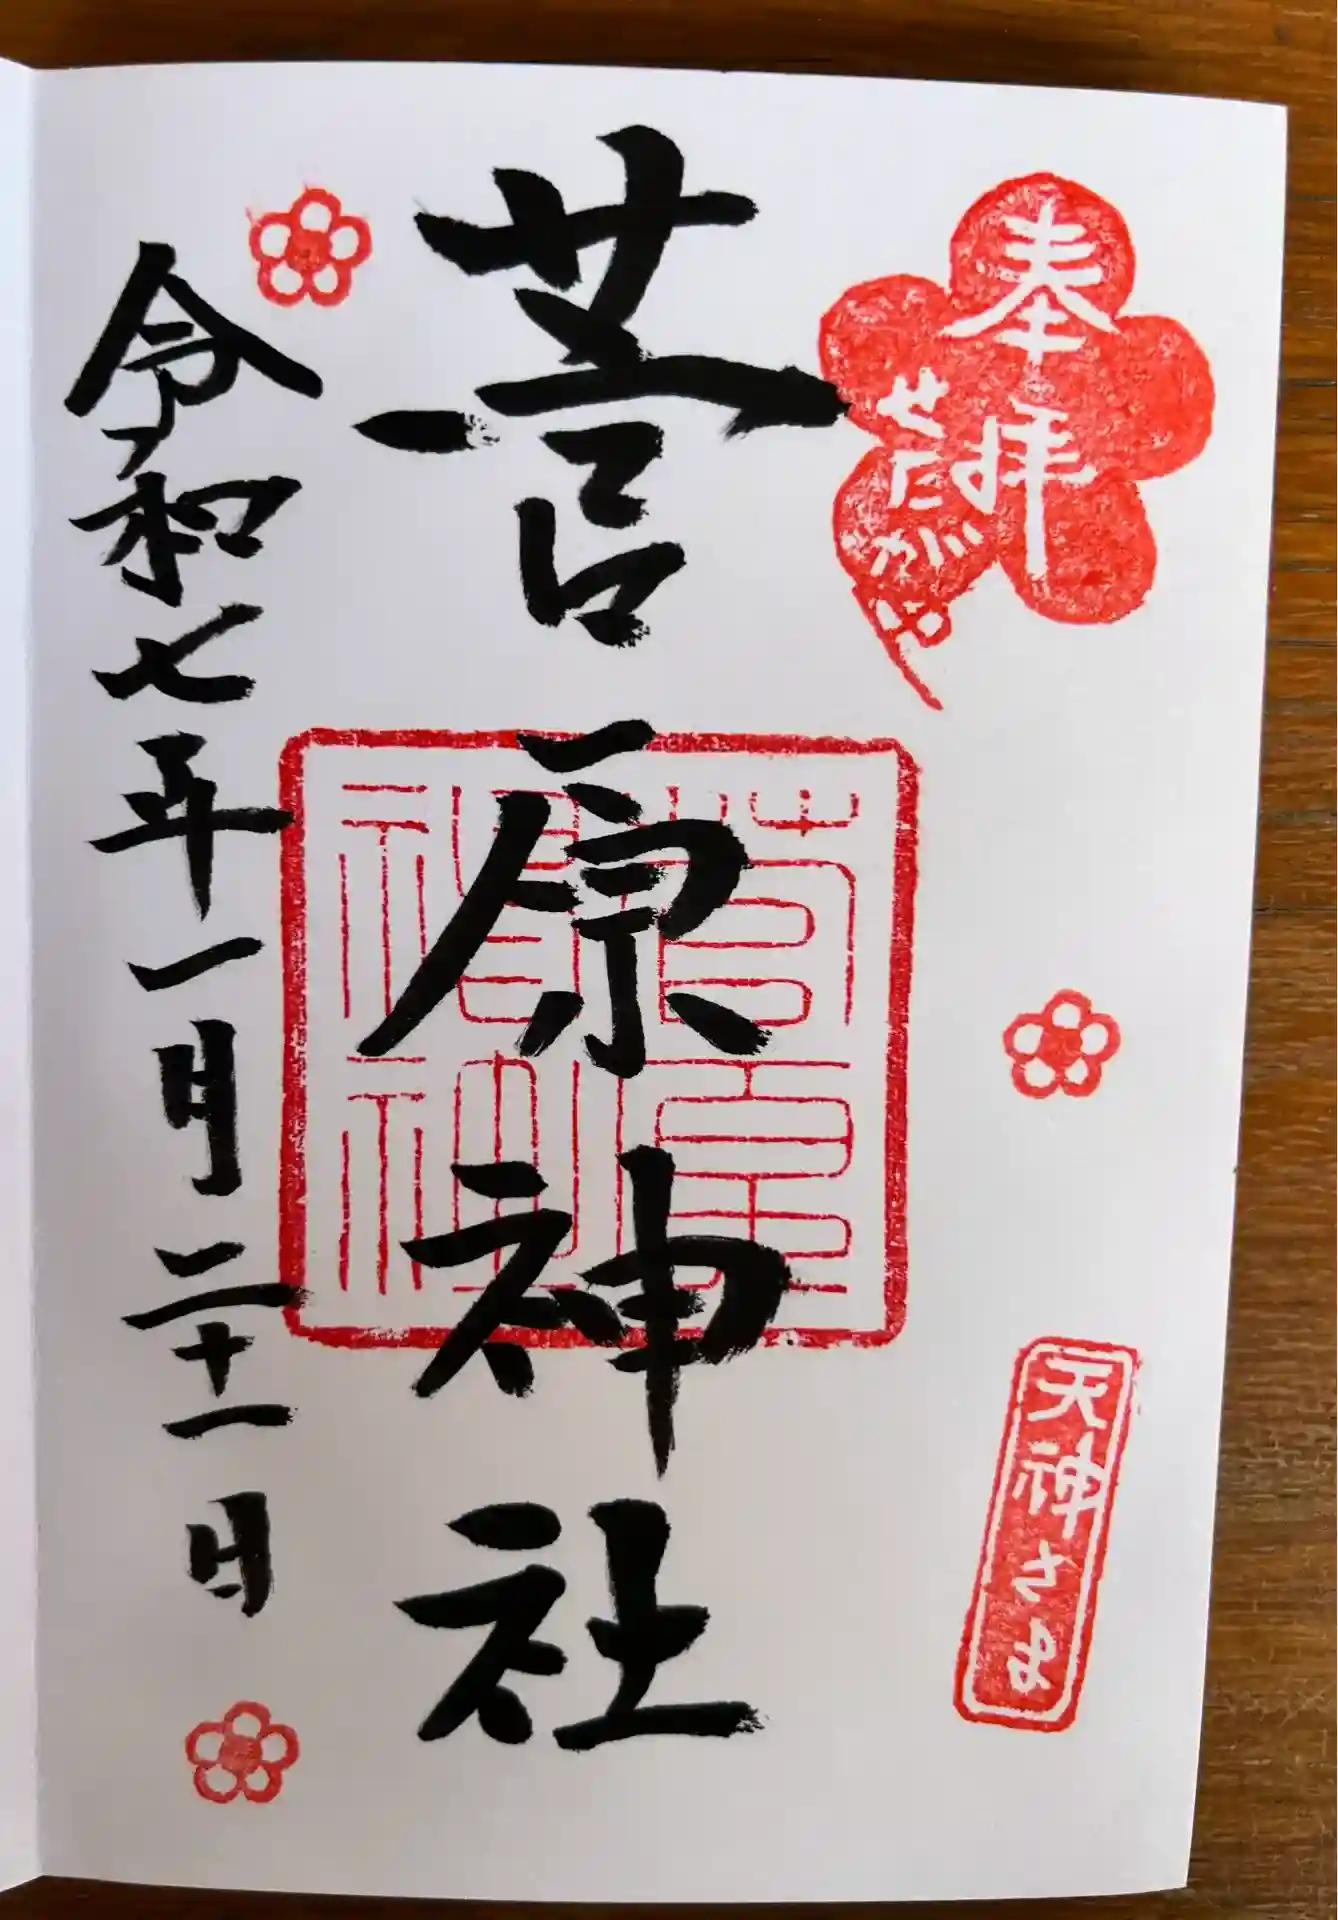 奉拝
せたがや
天神さま
菅原神社
菅原
神社
令和七年一月二十一日